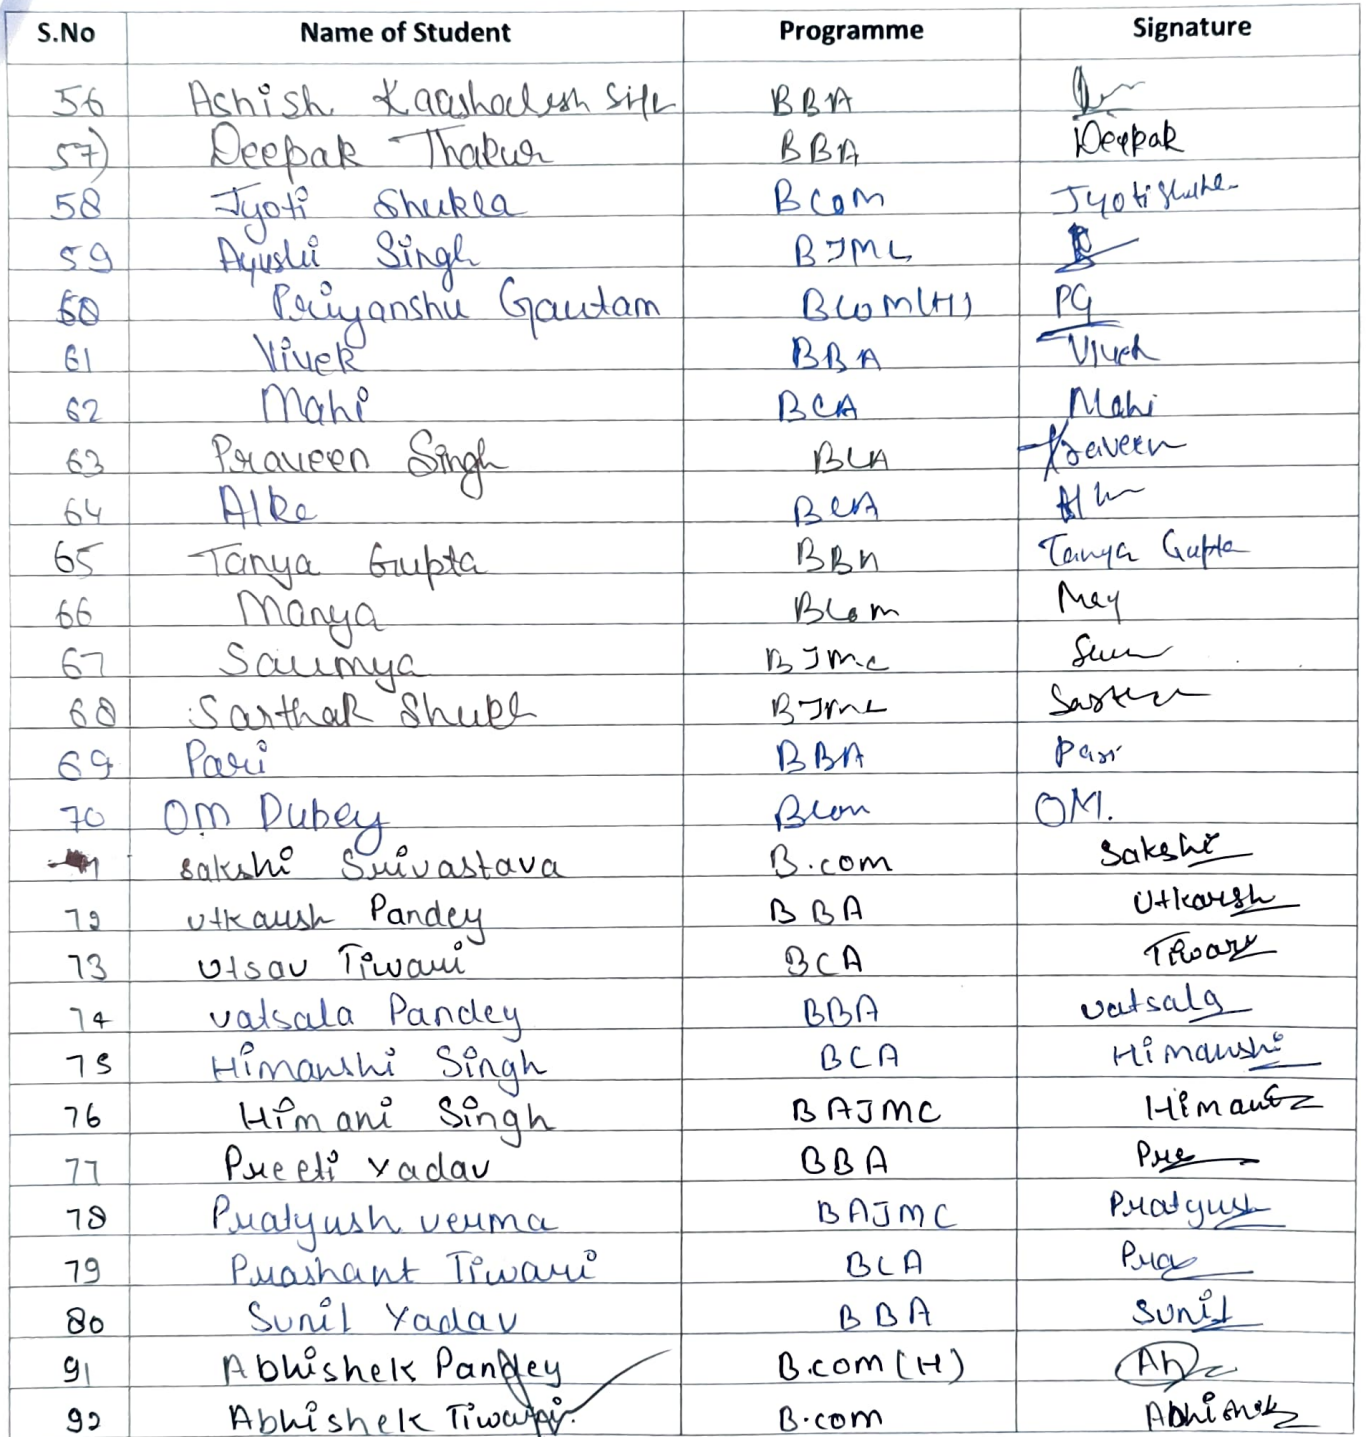 S.No Name of Student Programme Signature
56 Ashish BBA
57) Deepak Thakur BBA Deepak
58 Jyoti Shukla BCom Jyoti
59 Ayushi Singh BJMC
60 Priyanshu Gautam BCOM(H) PG
61 Vivek BBA Vivek
62 Mahi BCA Mahi
63 Praveen Singh BCA Praveen
64 Alka BCA
65 Tanya Gupta BBA Tanya Gupta
66 Manya BCom
67 Saumya BJMC
68 Sarthak Shukl BJMC
69 Pari BBA Pari
70 Om Dubey BCom OM.
sakshi Srivastava B.com Sakshi
72 Utkarsh Pandey BBA Utkarsh
73 Utsav Tiwari BCA Tiwari
74 vatsala Pandey BBA vatsala
75 Himanshi Singh BCA Himanshi
76 Himani Singh BAJMC Himani
77 Preeti Yadav BBA Pre
78 Pratyush verma BAJMC Pratyush
79 Prashant Tiwari BCA Pra
80 Sunil Yadav BBA Sunil
91 Abhishek Pandey B.com (H) Ah
92 Abhishek Tiwari. B.com Abhishek